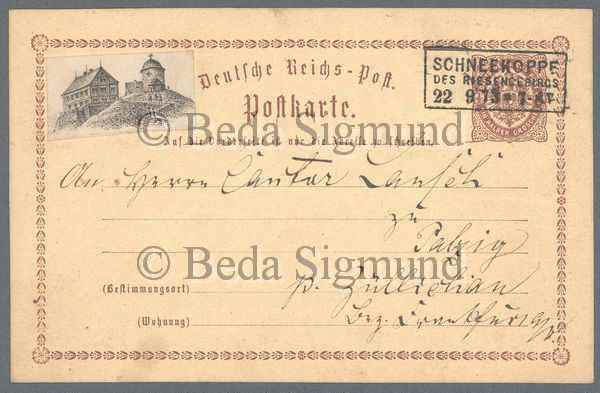 SCHNEEKOPPE
DES RIESENGEBIRGS
22 9 73 * 7-8T
Deutsche Reichs-Post.
Postkarte.
© Beda Sigmund
Auf die Vorderseite ist nur die Adresse zu schreiben.
An Herrn Cantor
zu
Palzig
© Beda Sigmund
(Bestimmungsort) p. Züllichau
(Wohnung) Bez. Frankfurt a/O.